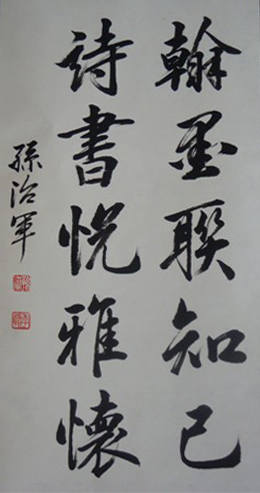 翰墨聯知己
詩書悦雅懷
孫治軍